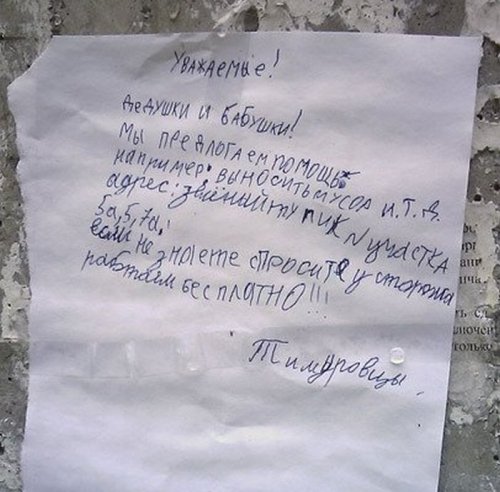 Уважаемые!
дедушки и бабушки!
мы предлогаем помощь
например: выносить мусор и.т.д.
адрес: званийте ПИК N участка
5а, 5, 7а,
если не знаете спросите у сторожа
работаем бесплатно!!!
Тимуровцы.